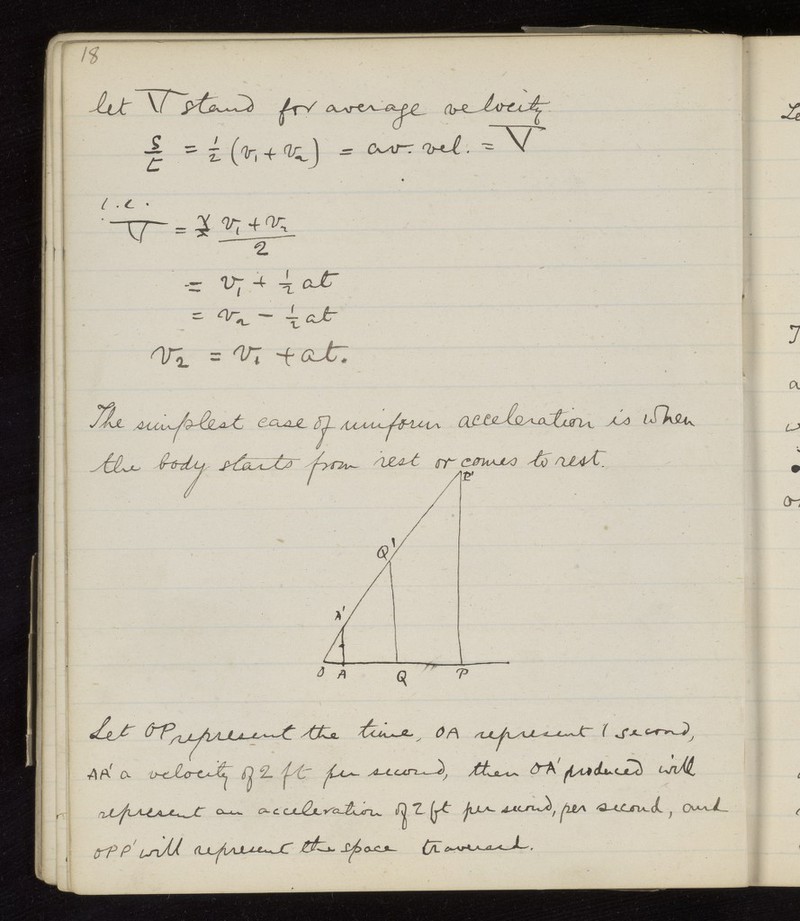 18
let V stand for average velocity
s/t = ½ (v₁ + v₂) = av. vel. = V
i.e.
V = (v₁ + v₂)/2
= v₁ + ½ at
= v₂ − ½ at
v₂ = v₁ + at.
The simplest case of uniform acceleration is when
the body starts from rest or comes to rest.
P'
Q'
A'
O A Q P
Let OP represent the time, OA represent 1 second,
AA' a velocity of 2 ft per second, then OA' produced will
represent an acceleration of 2 ft per second, per second, and
OPP' will represent the space traversed.